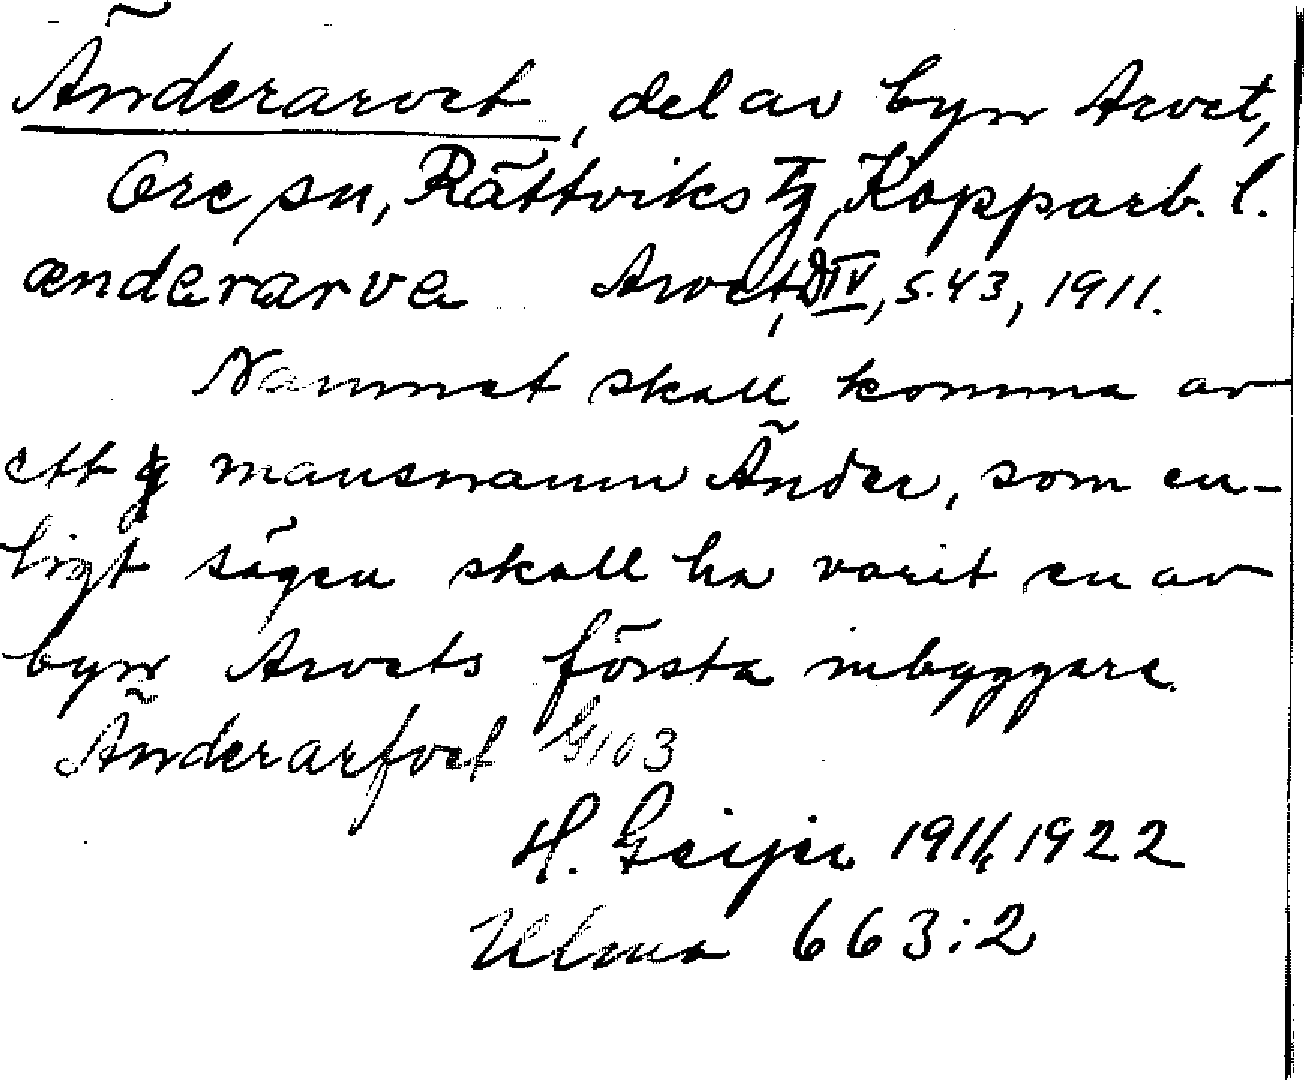 Änderarvet, del av byn Arvet,
Ore sn, Rättviks tg, Kopparb. l.
ænderarva Arvet, D IV, s. 43, 1911.
Namnet skall komma av
ett mansnamn Änder, som en-
ligt sägen skall ha varit en av
byn Arvets första inbyggare.
Änderarfvet G103
H. Geijer 1911, 1922
Ulma 663:2